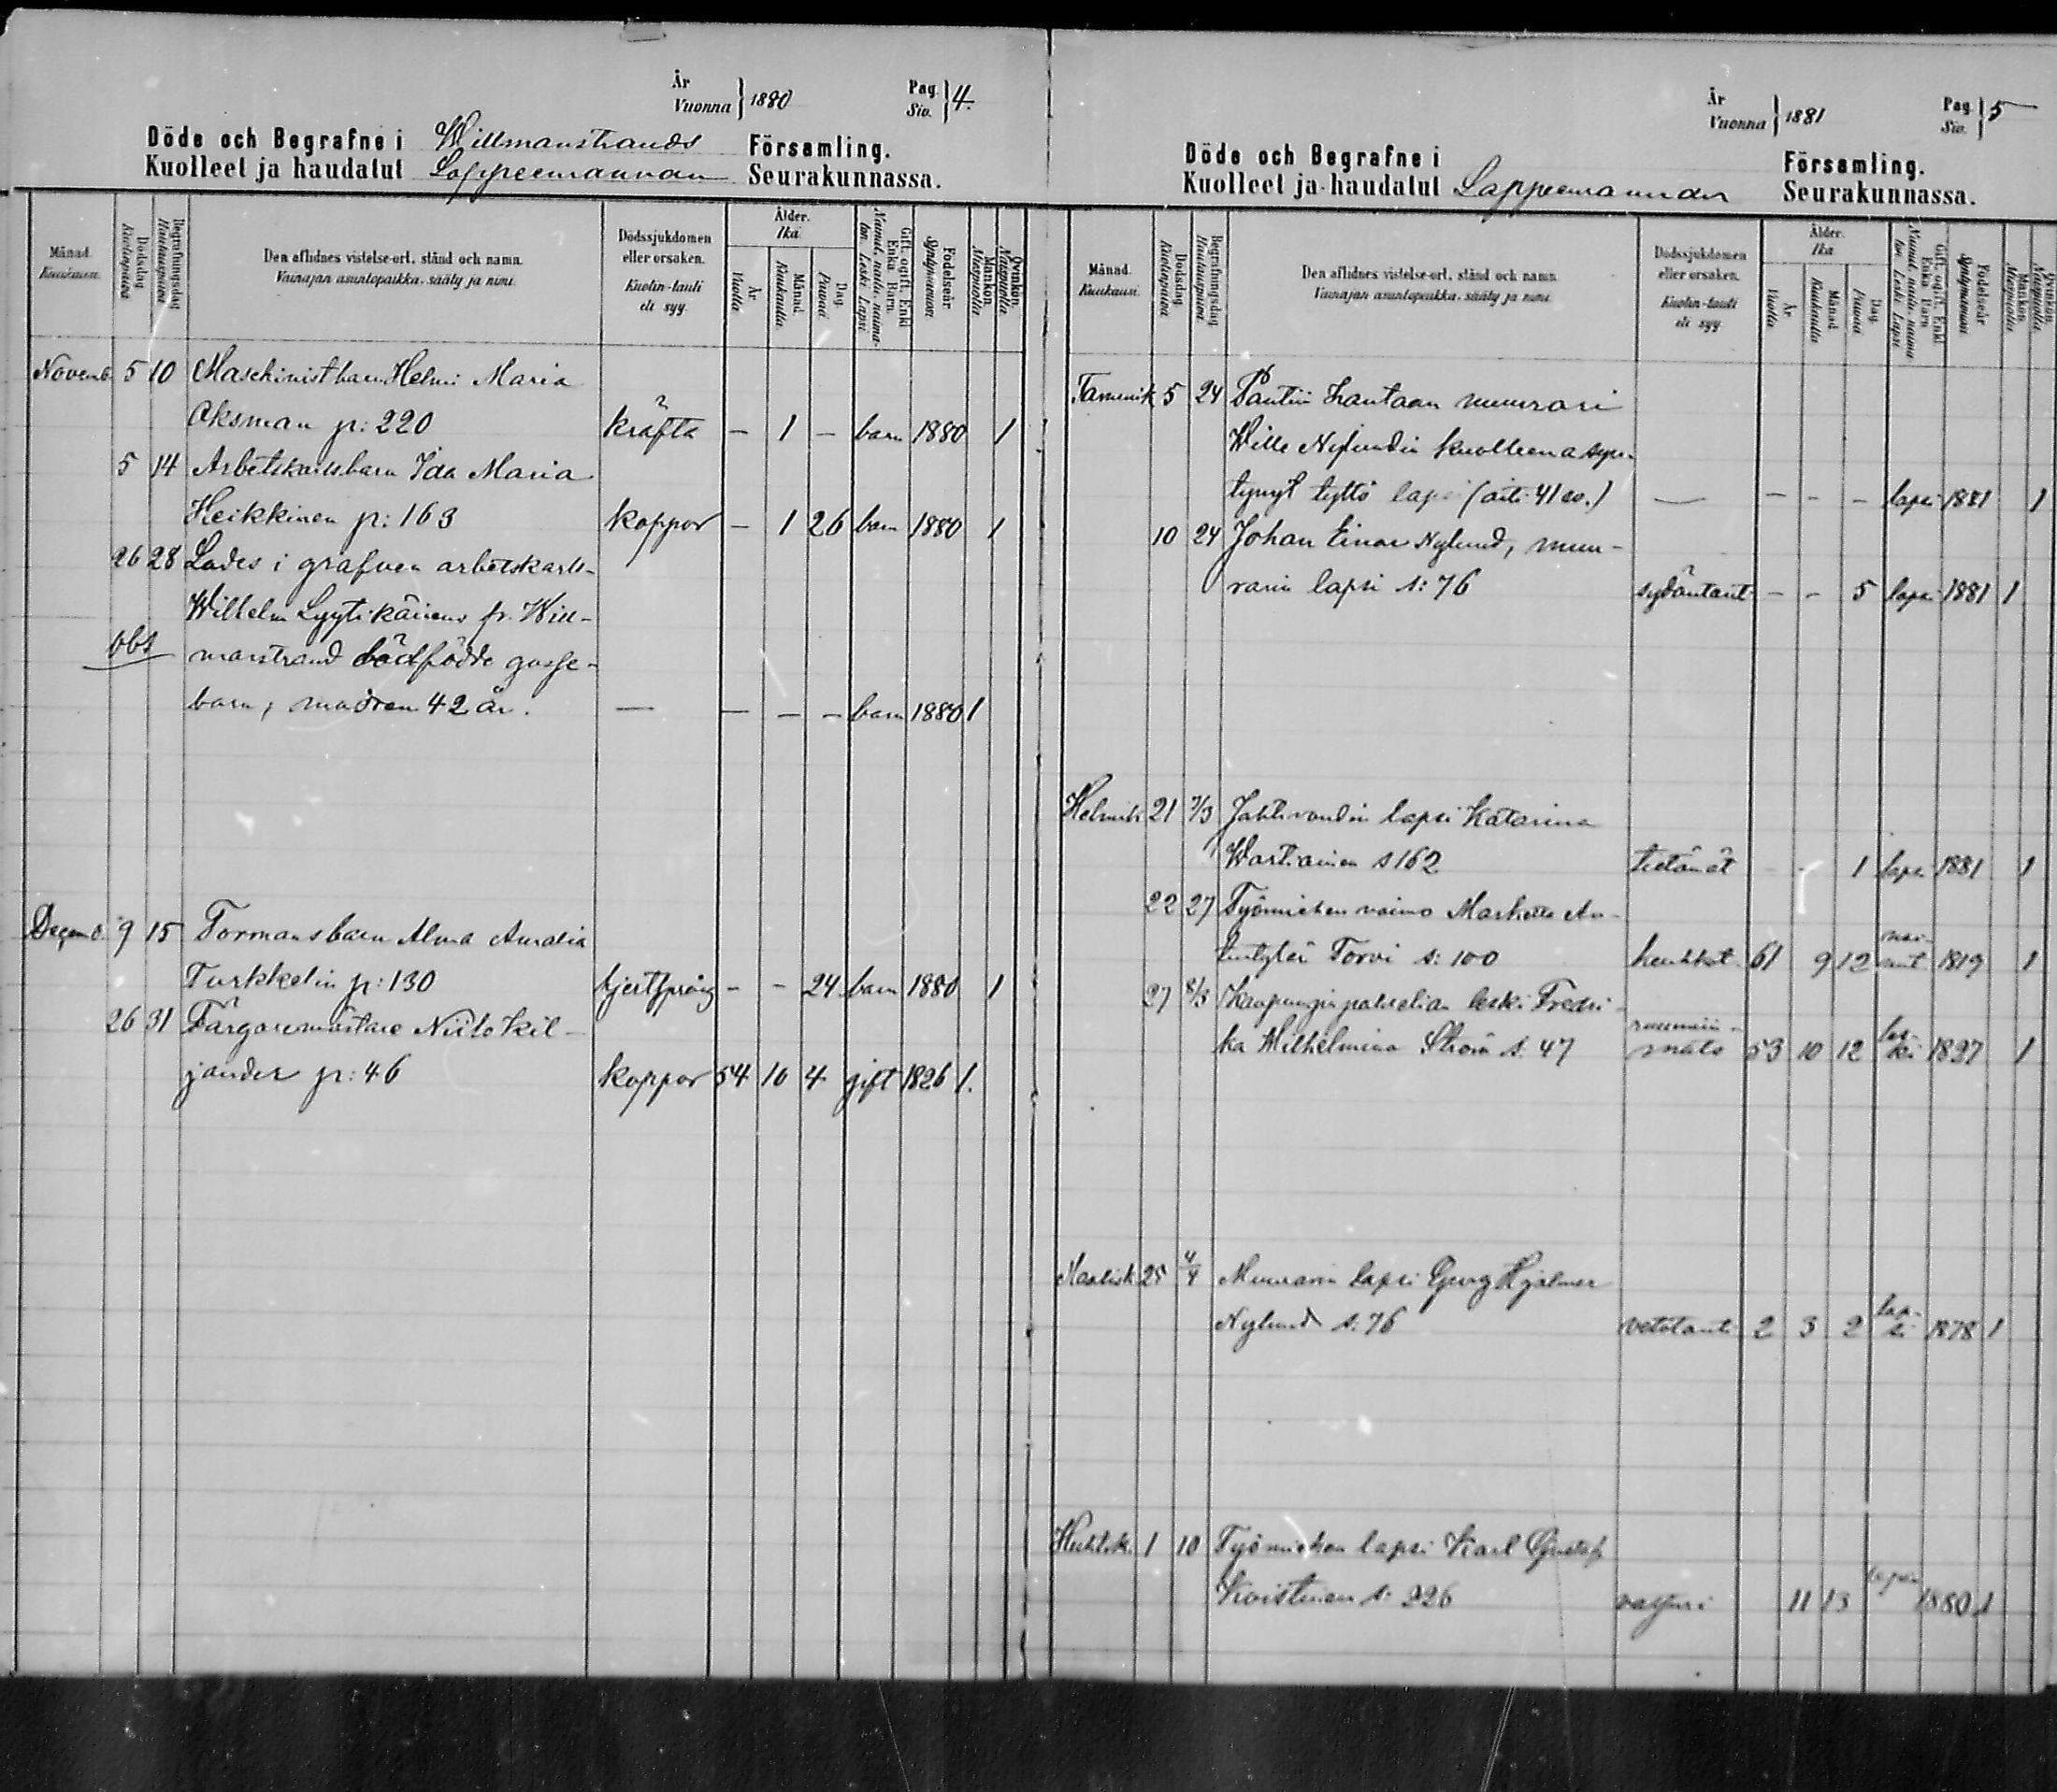 År
Vuonna } 1880
Pag.
Siv. } 4.
Döde och Begrafne i Willmanstrands Församling.
Kuolleet ja haudatut Lappeenrannan Seurakunnassa.
Månad. Kuukausi.
Dödsdag Kuolinpäivä
Begrafningsdag Hautauspäivä
Den aflidnes vistelse-ort, stånd och namn.
Vainajan asuntopaikka, sääty ja nimi.
Dödssjukdomen eller orsaken.
Kuolin-tauti eli syy.
Ålder. Ikä.
År Vuotta
Månad. Kuukautta
Dag. Päivää
Gift, ogift, Enkl. Enka Barn.
Nainut, naima-ton, Leski, Lapsi
Födelseår Syntymävuosi
Mankön. Miespuolia
Qvinkön. Naispuolia
Novemb. 5 10 Maschinistbarn Helmi Maria
Oksman p: 220 kräfta – 1 – barn 1880 1
5 14 Arbetskarlsbarn Ida Maria
Heikkinen p: 163 koppor – 1 26 barn 1880 1
26 28 Lades i grafven arbetskarls-
Wilhelm Lyytikäinens fr. Will-
obs manstrand dödfödde gosse-
barn, modren 42 år. — — – – barn 1880 1
Decemb. 9 15 Formansbarn Alma Amalia
Turkkelin p: 130 hjertsprång – – 24 barn 1880 1
26 31 Färgaremästare Niilo Kil-
jander p: 46 koppor 54 10 4 gift 1826 1.
År
Vuonna } 1881
Pag.
Siv. } 5
Döde och Begrafne i Församling.
Kuolleet ja haudatut Lappeenrannan Seurakunnassa.
Månad. Kuukausi.
Dödsdag Kuolinpäivä
Begrafningsdag Hautauspäivä
Den aflidnes vistelse-ort, stånd och namn.
Vainajan asuntopaikka, sääty ja nimi.
Dödssjukdomen eller orsaken.
Kuolin-tauti eli syy.
Ålder. Ikä.
År Vuotta
Månad. Kuukautta
Dag. Päivää
Gift, ogift, Enkl. Enka Barn
Nainut, naima-ton, Leski, Lapsi
Födelseår Syntymävuosi
Mankön. Miespuolia
Qvinkön. Naispuolia
Tammik 5 24 Pantiin hautaan muurari
Wille Nylundin kuolleena syn-
tynyt tyttö lapsi (äiti 41 v.) — – – – lapsi 1881 1
10 24 Johan Einar Nylund, muu-
rarin lapsi s: 76 sydäntaut – – 5 lapsi 1881 1
Helmik 21 7/3 Jahtivoudin lapsi Katarina
Wartiainen s 162 tietämät 1 lapsi 1881 1
22 27 Työmiehen vaimo Marketta An-
tintytär Torvi s: 100 keuhkot. 61 9 12 nai-nut 1819 1
27 8/3 Kaupungin palvelian leski Fredri-
ka Wilhelmina Ström s. 47 53 10 12 les-ki 1827 1
Maalisk 25 4/4 Muurarin lapsi Georg Hjalmar
Nylund s: 76 vetotaut 2 3 2 lap-si 1878 1
Huhtik. 1 10 Työmiehen lapsi Karl Gustaf
Koistinen s: 226 11 13 lapsi 1880 1